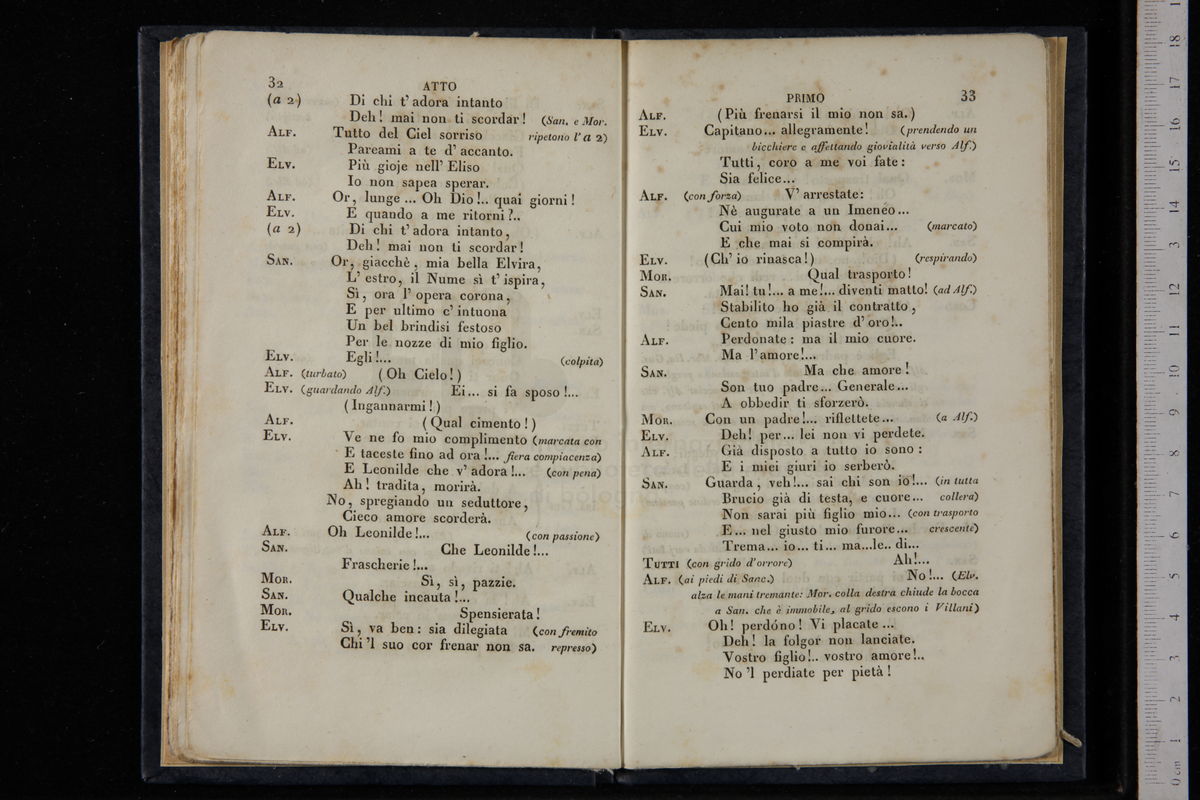 32
ATTO
(a 2) Di chi t' adora intanto
Deh! mai non ti scordar! (San. e Mor.
ALF. Tutto del Ciel sorriso ripetono l' a 2)
Pareami a te d' accanto.
ELV. Più gioje nell' Eliso
Io non sapea sperar.
ALF. Or, lunge ... Oh Dio!.. quai giorni!
ELV. E quando a me ritorni?..
(a 2) Di chi t' adora intanto,
Deh! mai non ti scordar!
SAN. Or, giacchè, mia bella Elvira,
L' estro, il Nume sì t' ispira,
Sì, ora l' opera corona,
E per ultimo c' intuona
Un bel brindisi festoso
Per le nozze di mio figlio.
ELV. Egli!... (colpita)
ALF. (turbato) (Oh Cielo!)
ELV. (guardando Alf.) Ei... si fa sposo!...
(Ingannarmi!)
ALF. (Qual cimento!)
ELV. Ve ne fo mio complimento (marcata con
E taceste fino ad ora!... fiera compiacenza)
E Leonilde che v' adora!... (con pena)
Ah! tradita, morirà.
No, spregiando un seduttore,
Cieco amore scorderà.
ALF. Oh Leonilde!... (con passione)
SAN. Che Leonilde!...
Frascherie!...
MOR. Sì, sì, pazzie.
SAN. Qualche incauta!...
MOR. Spensierata!
ELV. Sì, va ben: sia dilegiata (con fremito
Chi 'l suo cor frenar non sa. represso)
PRIMO
33
ALF. (Più frenarsi il mio non sa.)
ELV. Capitano... allegramente! (prendendo un
bicchiere e affettando giovialità verso Alf.)
Tutti, coro a me voi fate:
Sia felice...
ALF. (con forza) V' arrestate:
Nè augurate a un Imenéo...
Cui mio voto non donai... (marcato)
E che mai si compirà.
ELV. (Ch' io rinasca!) (respirando)
MOR. Qual trasporto!
SAN. Mai! tu!... a me!... diventi matto! (ad Alf.)
Stabilito ho già il contratto,
Cento mila piastre d' oro!..
ALF. Perdonate: ma il mio cuore.
Ma l' amore!...
SAN. Ma che amore!
Son tuo padre... Generale...
A obbedir ti sforzerò.
MOR. Con un padre!... riflettete... (a Alf.)
ELV. Deh! per... lei non vi perdete.
ALF. Già disposto a tutto io sono:
E i miei giuri io serberò.
SAN. Guarda, veh!... sai chi son io!... (in tutta
Brucio già di testa, e cuore... collera)
Non sarai più figlio mio... (con trasporto
E... nel giusto mio furore... crescente)
Trema... io... ti... ma...le.. di...
TUTTI (con grido d'orrore) Ah!...
ALF. (ai piedi di Sanc.) No!... (Elv.
alza le mani tremante: Mor. colla destra chiude la bocca
a San. che è immobile, al grido escono i Villani)
ELV. Oh! perdóno! Vi placate ...
Deh! la folgor non lanciate.
Vostro figlio!.. vostro amore!..
No 'l perdiate per pietà!